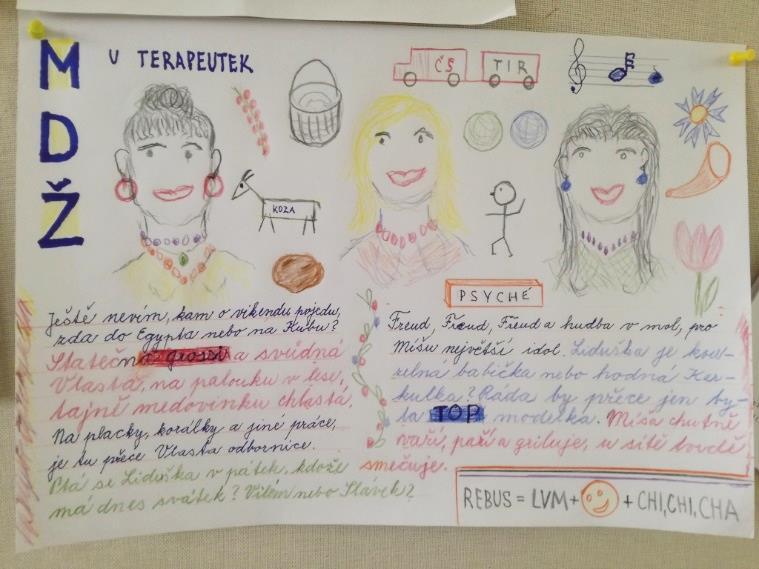 MDŽ
U TERAPEUTEK
ČS TIR
KOZA
PSYCHÉ
Ještě nevím, kam o víkendu pojedu,
zda do Egypta nebo na Kubu?
Stateč a svůdná
Vlasta, na palouku v lese,
tajně medovinku chlastá.
Na placky, korálky a jiné práce,
je tu přece Vlasta odbornice.
Ptá se Liduška v pátek, kdože
má dnes svátek? Vilém nebo Slávek?
Freud, Freud, Freud a hudba v mol, pro
Míšu největší idol. Liduška je kou-
zelná babička nebo hodná Kar-
kulka? Ráda by přece jen by-
la TOP modelka. Míša chutně
vaří, paří a griluje, u sítě tvrdě
smečuje.
REBUS = LVM+ + CHI, CHI, CHA